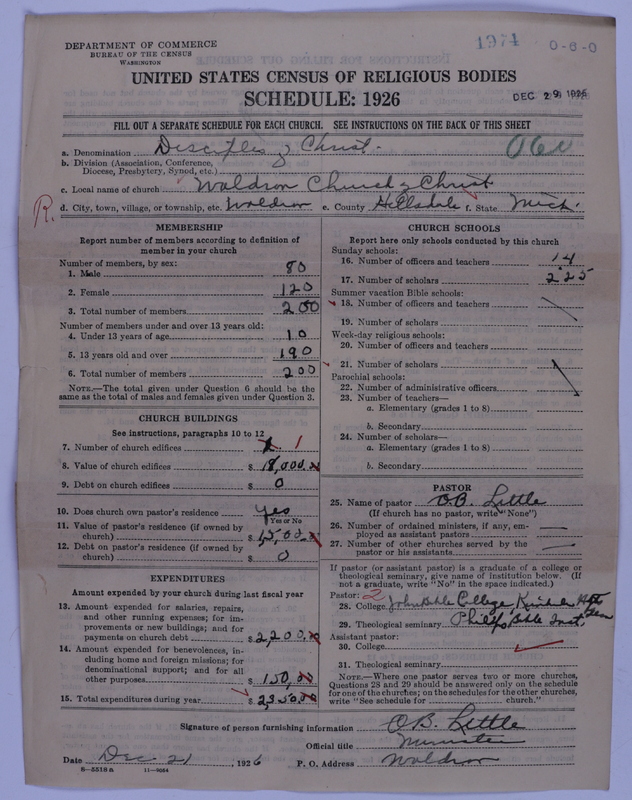 1974 0-6-0
DEPARTMENT OF COMMERCE
BUREAU OF THE CENSUS
WASHINGTON
UNITED STATES CENSUS OF RELIGIOUS BODIES
SCHEDULE: 1926
DEC 29 1926
FILL OUT A SEPARATE SCHEDULE FOR EACH CHURCH. SEE INSTRUCTIONS ON THE BACK OF THIS SHEET
060
a. Denomination Disciples of Christ.
b. Division (Association, Conference,
Diocese, Presbytery, Synod, etc.)
c. Local name of church Waldron Church of Christ
R. d. City, town, village, or township, etc. Waldron e. County Hillsdale f. State Mich.
MEMBERSHIP
Report number of members according to definition of
member in your church
Number of members, by sex:
1. Male 80
2. Female 120
3. Total number of members 200
Number of members under and over 13 years old:
4. Under 13 years of age 10
5. 13 years old and over 190
6. Total number of members 200
NOTE.—The total given under Question 6 should be
same as the total of males and females given under Question 3.
CHURCH BUILDINGS
See instructions, paragraphs 10 to 12
7. Number of church edifices 1
8. Value of church edifices $ 18,000.
9. Debt on church edifices $ 0
10. Does church own pastor's residence yes
Yes or No
11. Value of pastor's residence (if owned by
church) $ 1,500.
12. Debt on pastor's residence (if owned by
church) $ 0
EXPENDITURES
Amount expended by your church during last fiscal year
13. Amount expended for salaries, repairs,
and other running expenses; for im-
provements or new buildings; and for
payments on church debt $ 2,200.
14. Amount expended for benevolences, in-
cluding home and foreign missions; for
denominational support; and for all
other purposes $ 150.
15. Total expenditures during year $ 2350.
CHURCH SCHOOLS
Report here only schools conducted by this church
Sunday schools:
16. Number of officers and teachers 14
17. Number of scholars 225
Summer vacation Bible schools:
18. Number of officers and teachers
19. Number of scholars
Week-day religious schools:
20. Number of officers and teachers
21. Number of scholars
Parochial schools:
22. Number of administrative officers
23. Number of teachers—
a. Elementary (grades 1 to 8)
b. Secondary
24. Number of scholars—
a. Elementary (grades 1 to 8)
b. Secondary
PASTOR
25. Name of pastor O.B. Little
(If church has no pastor, write "None")
26. Number of ordained ministers, if any, em-
ployed as assistant pastors
27. Number of other churches served by the
pastor or his assistants
If pastor (or assistant pastor) is a graduate of a college or
theological seminary, give name of institution below. (If
not a graduate, write "No" in the space indicated.)
Pastor: 2
28. College Bible College,
29. Theological seminary Bible Inst.
Assistant pastor:
30. College
31. Theological seminary
NOTE.—Where one pastor serves two or more churches,
Questions 28 and 29 should be answered only on the schedule
for one of the churches; on the schedules for the other churches,
write "See schedule for church."
Signature of person furnishing information O.B. Little
Official title Minister
Date Dec. 21, 1926 P. O. Address Waldron
8—5518a 11—9064